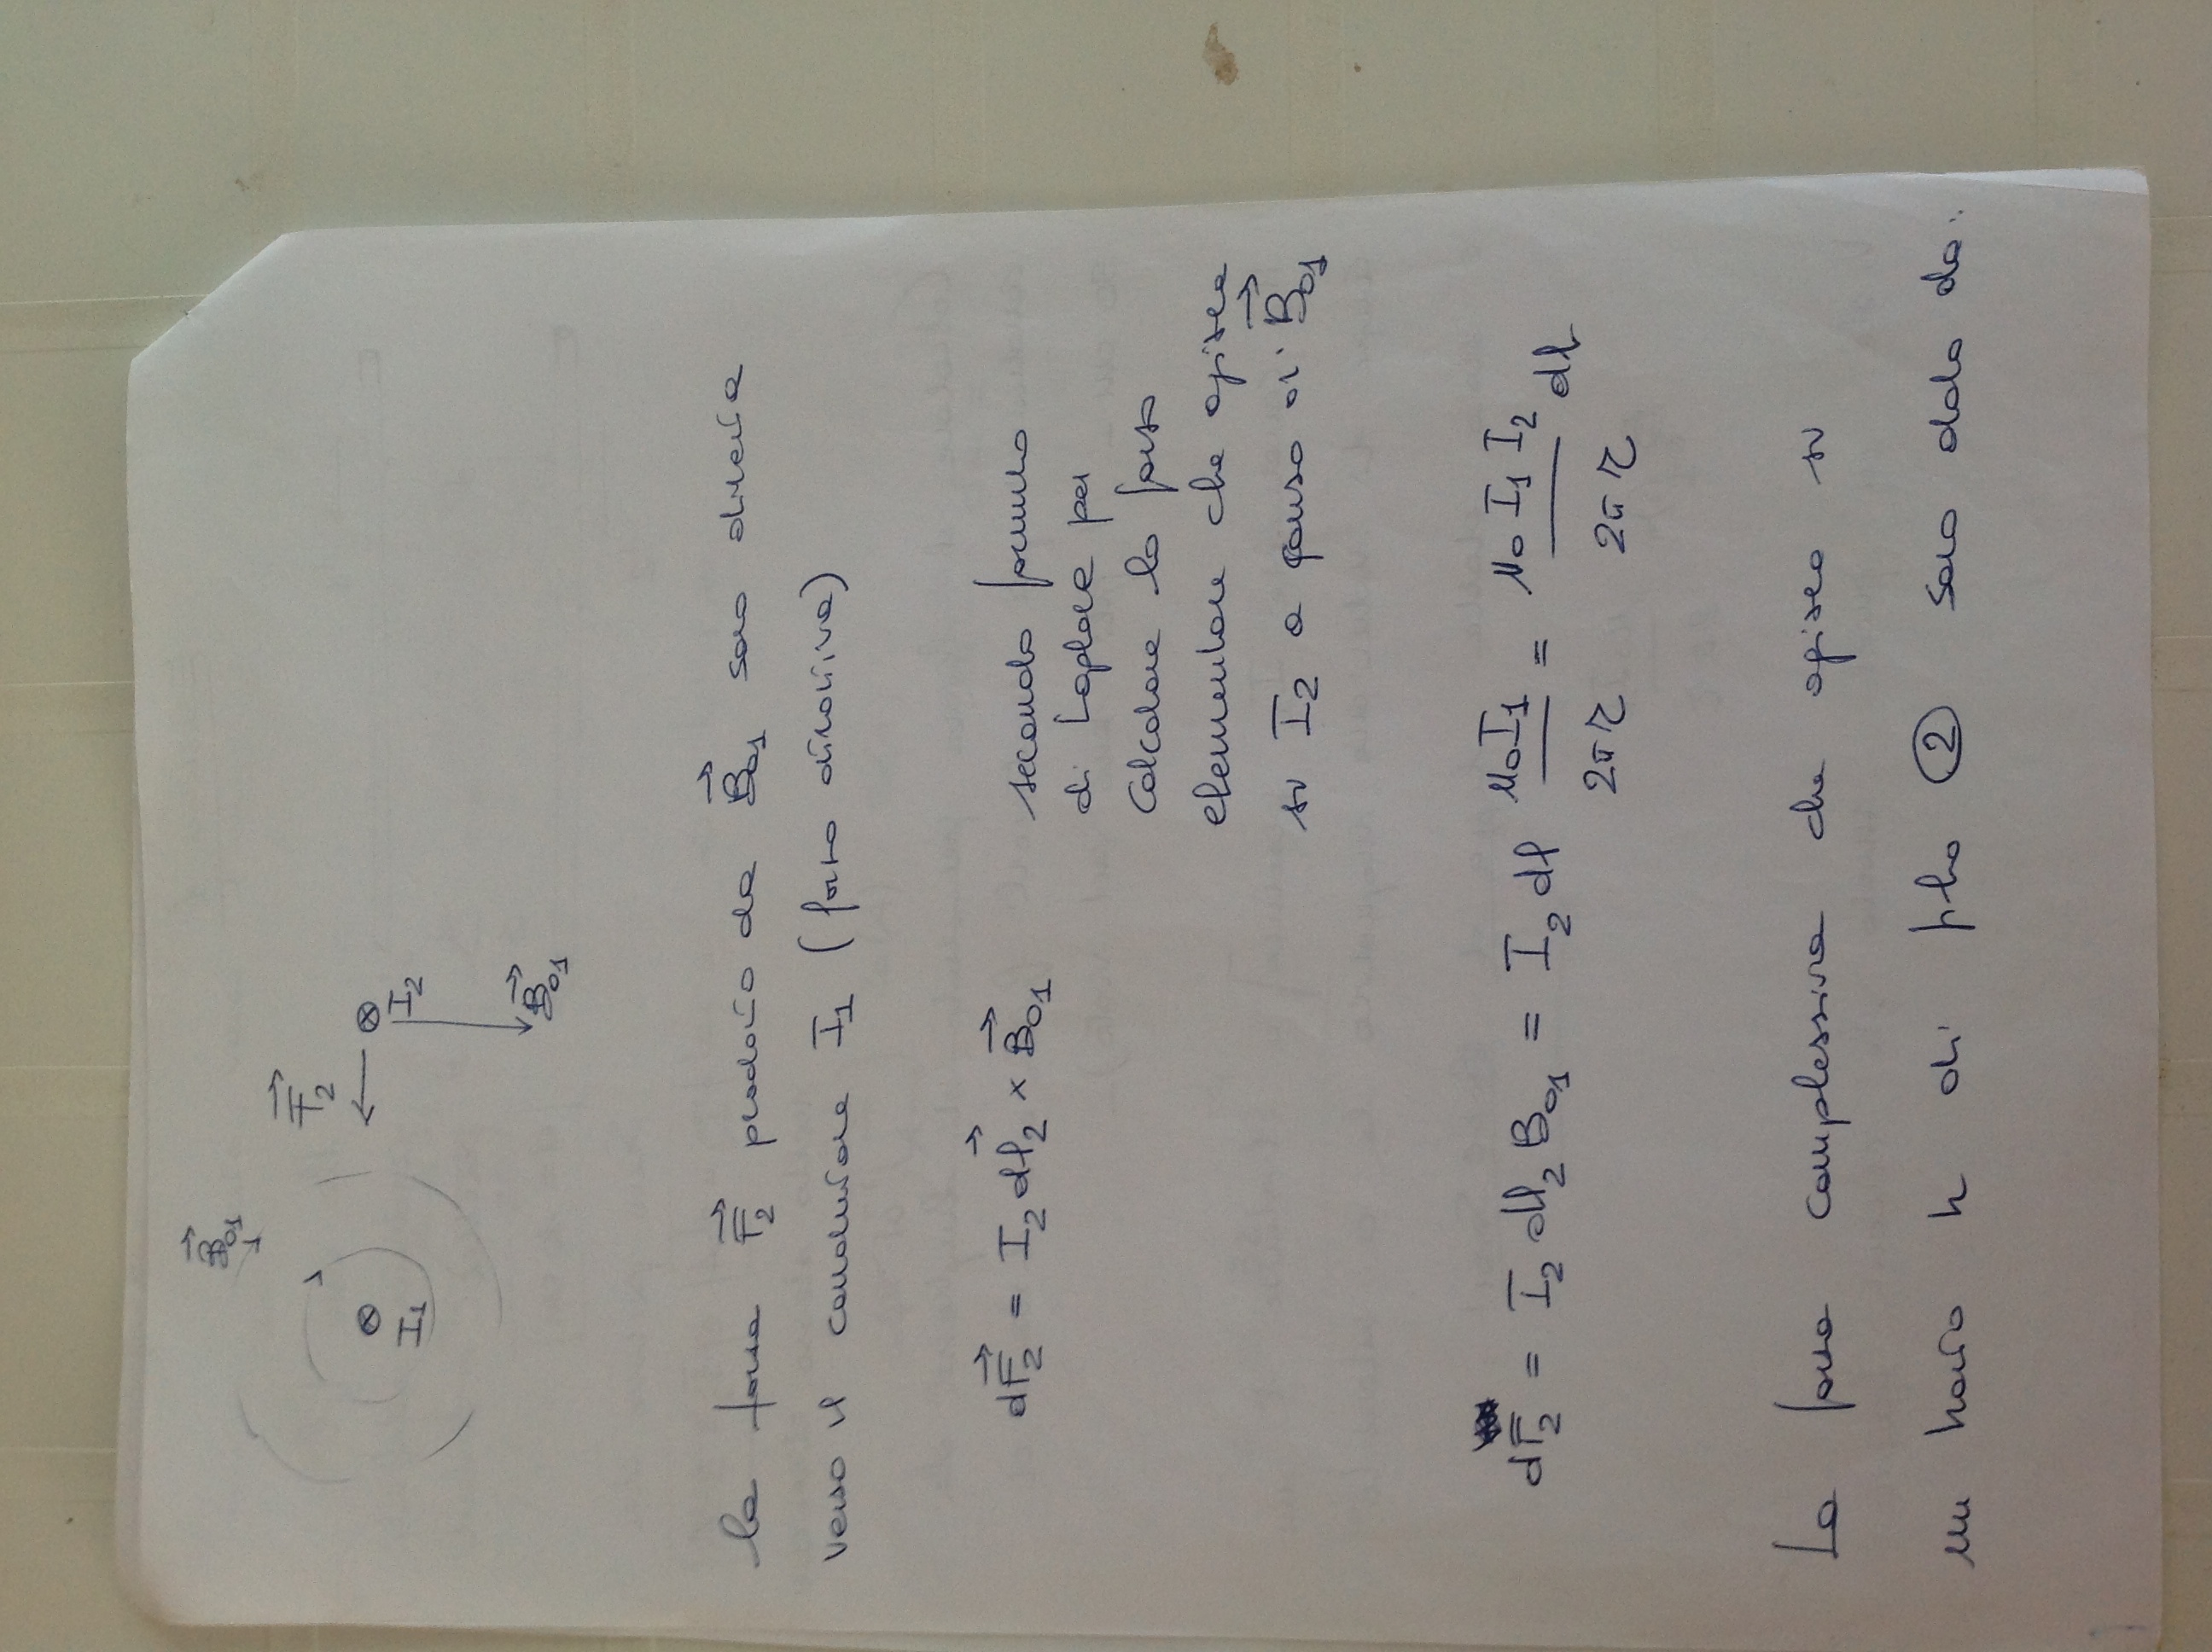 B⃗₀₁
F⃗₂
⊗ ← ⊗
I₁ I₂
B⃗₀₁
la forza F⃗₂ prodotta da B⃗₀₁ sarà diretta
verso il conduttore I₁ (forza attrattiva)
dF⃗₂ = I₂ dl⃗₂ × B⃗₀₁ seconda formula
di Laplace per
calcolare la forza
elementare che agisce
su I₂ a causa di B⃗₀₁
dF₂ = I₂ dl₂ B₀₁ = I₂ dl μ₀I₁/2πr = μ₀ I₁ I₂/2πr dl
La forza complessiva che agisce su
un tratto h di filo ② sarà data da: